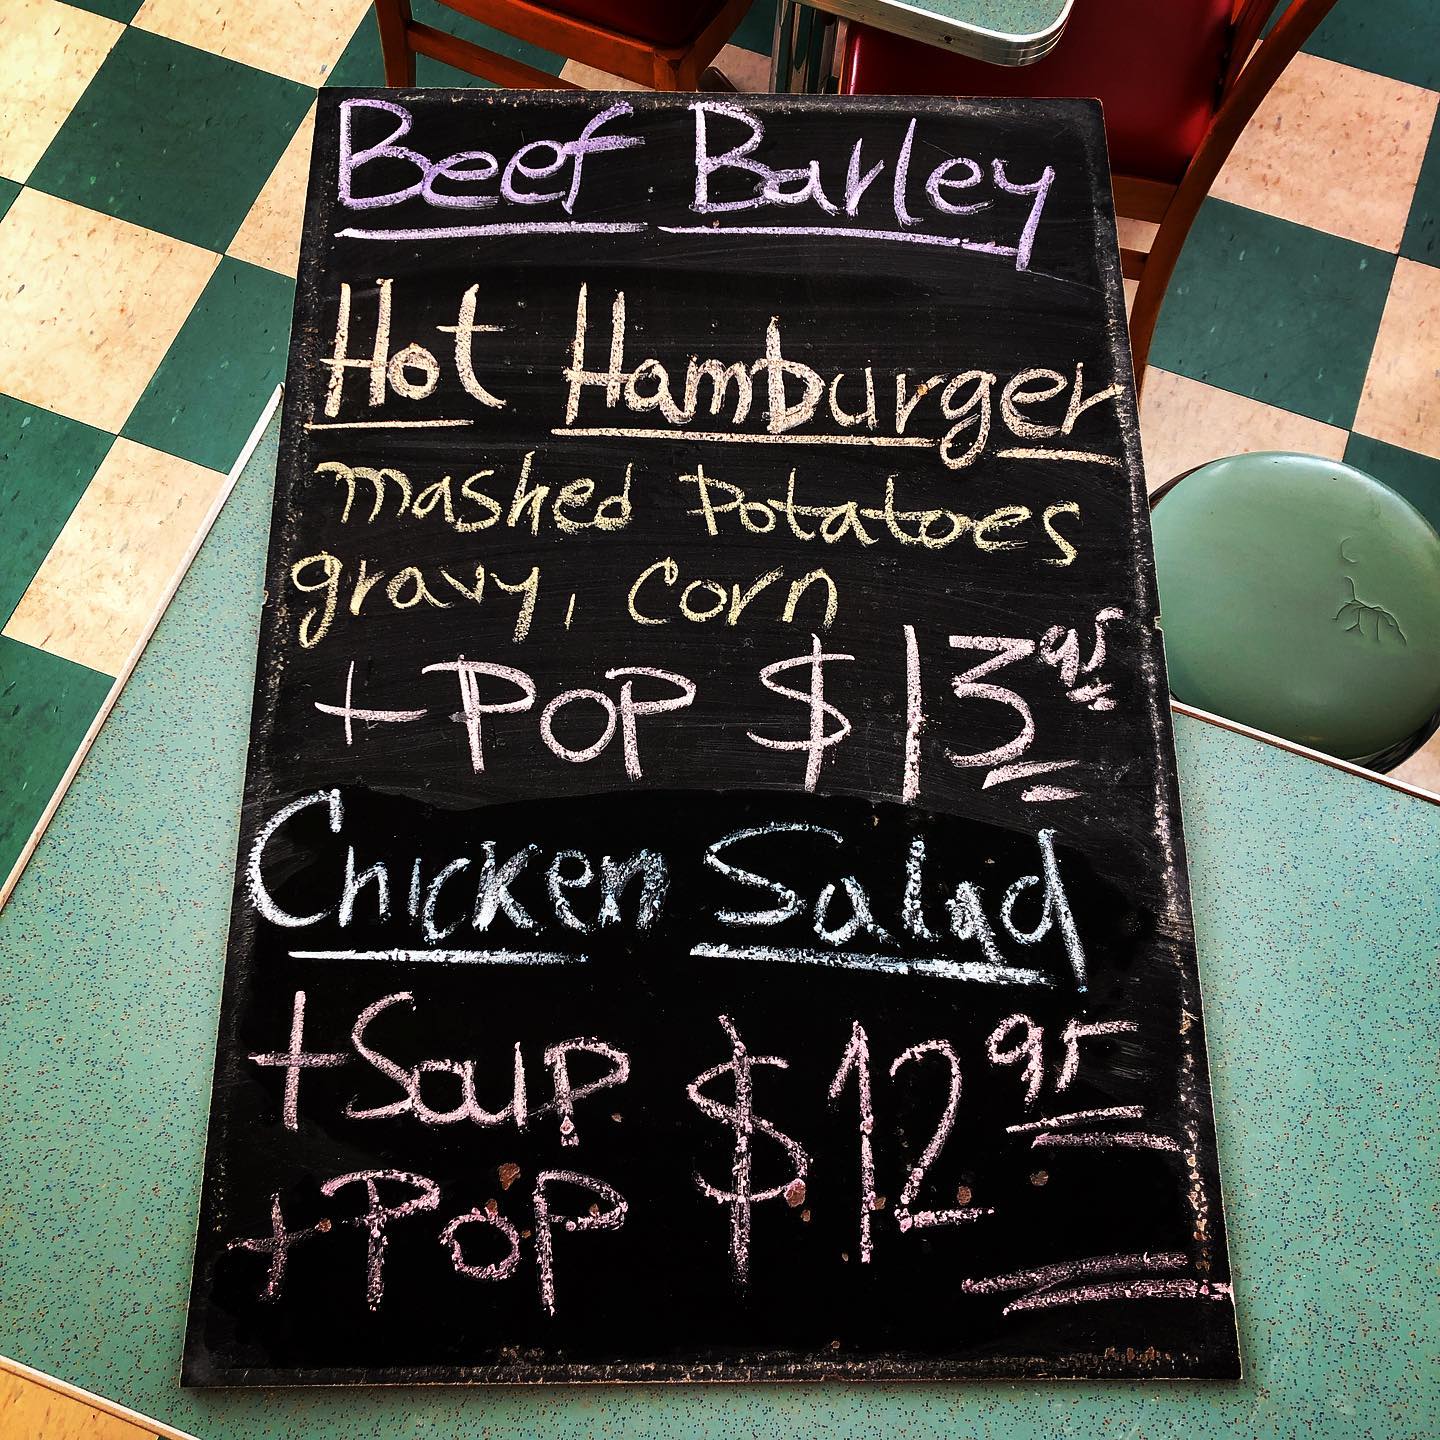 Beef Barley
Hot Hamburger
mashed Potatoes
gravy, corn
+ POP $13.95
Chicken Salad
+ Soup $12.95
+ POP